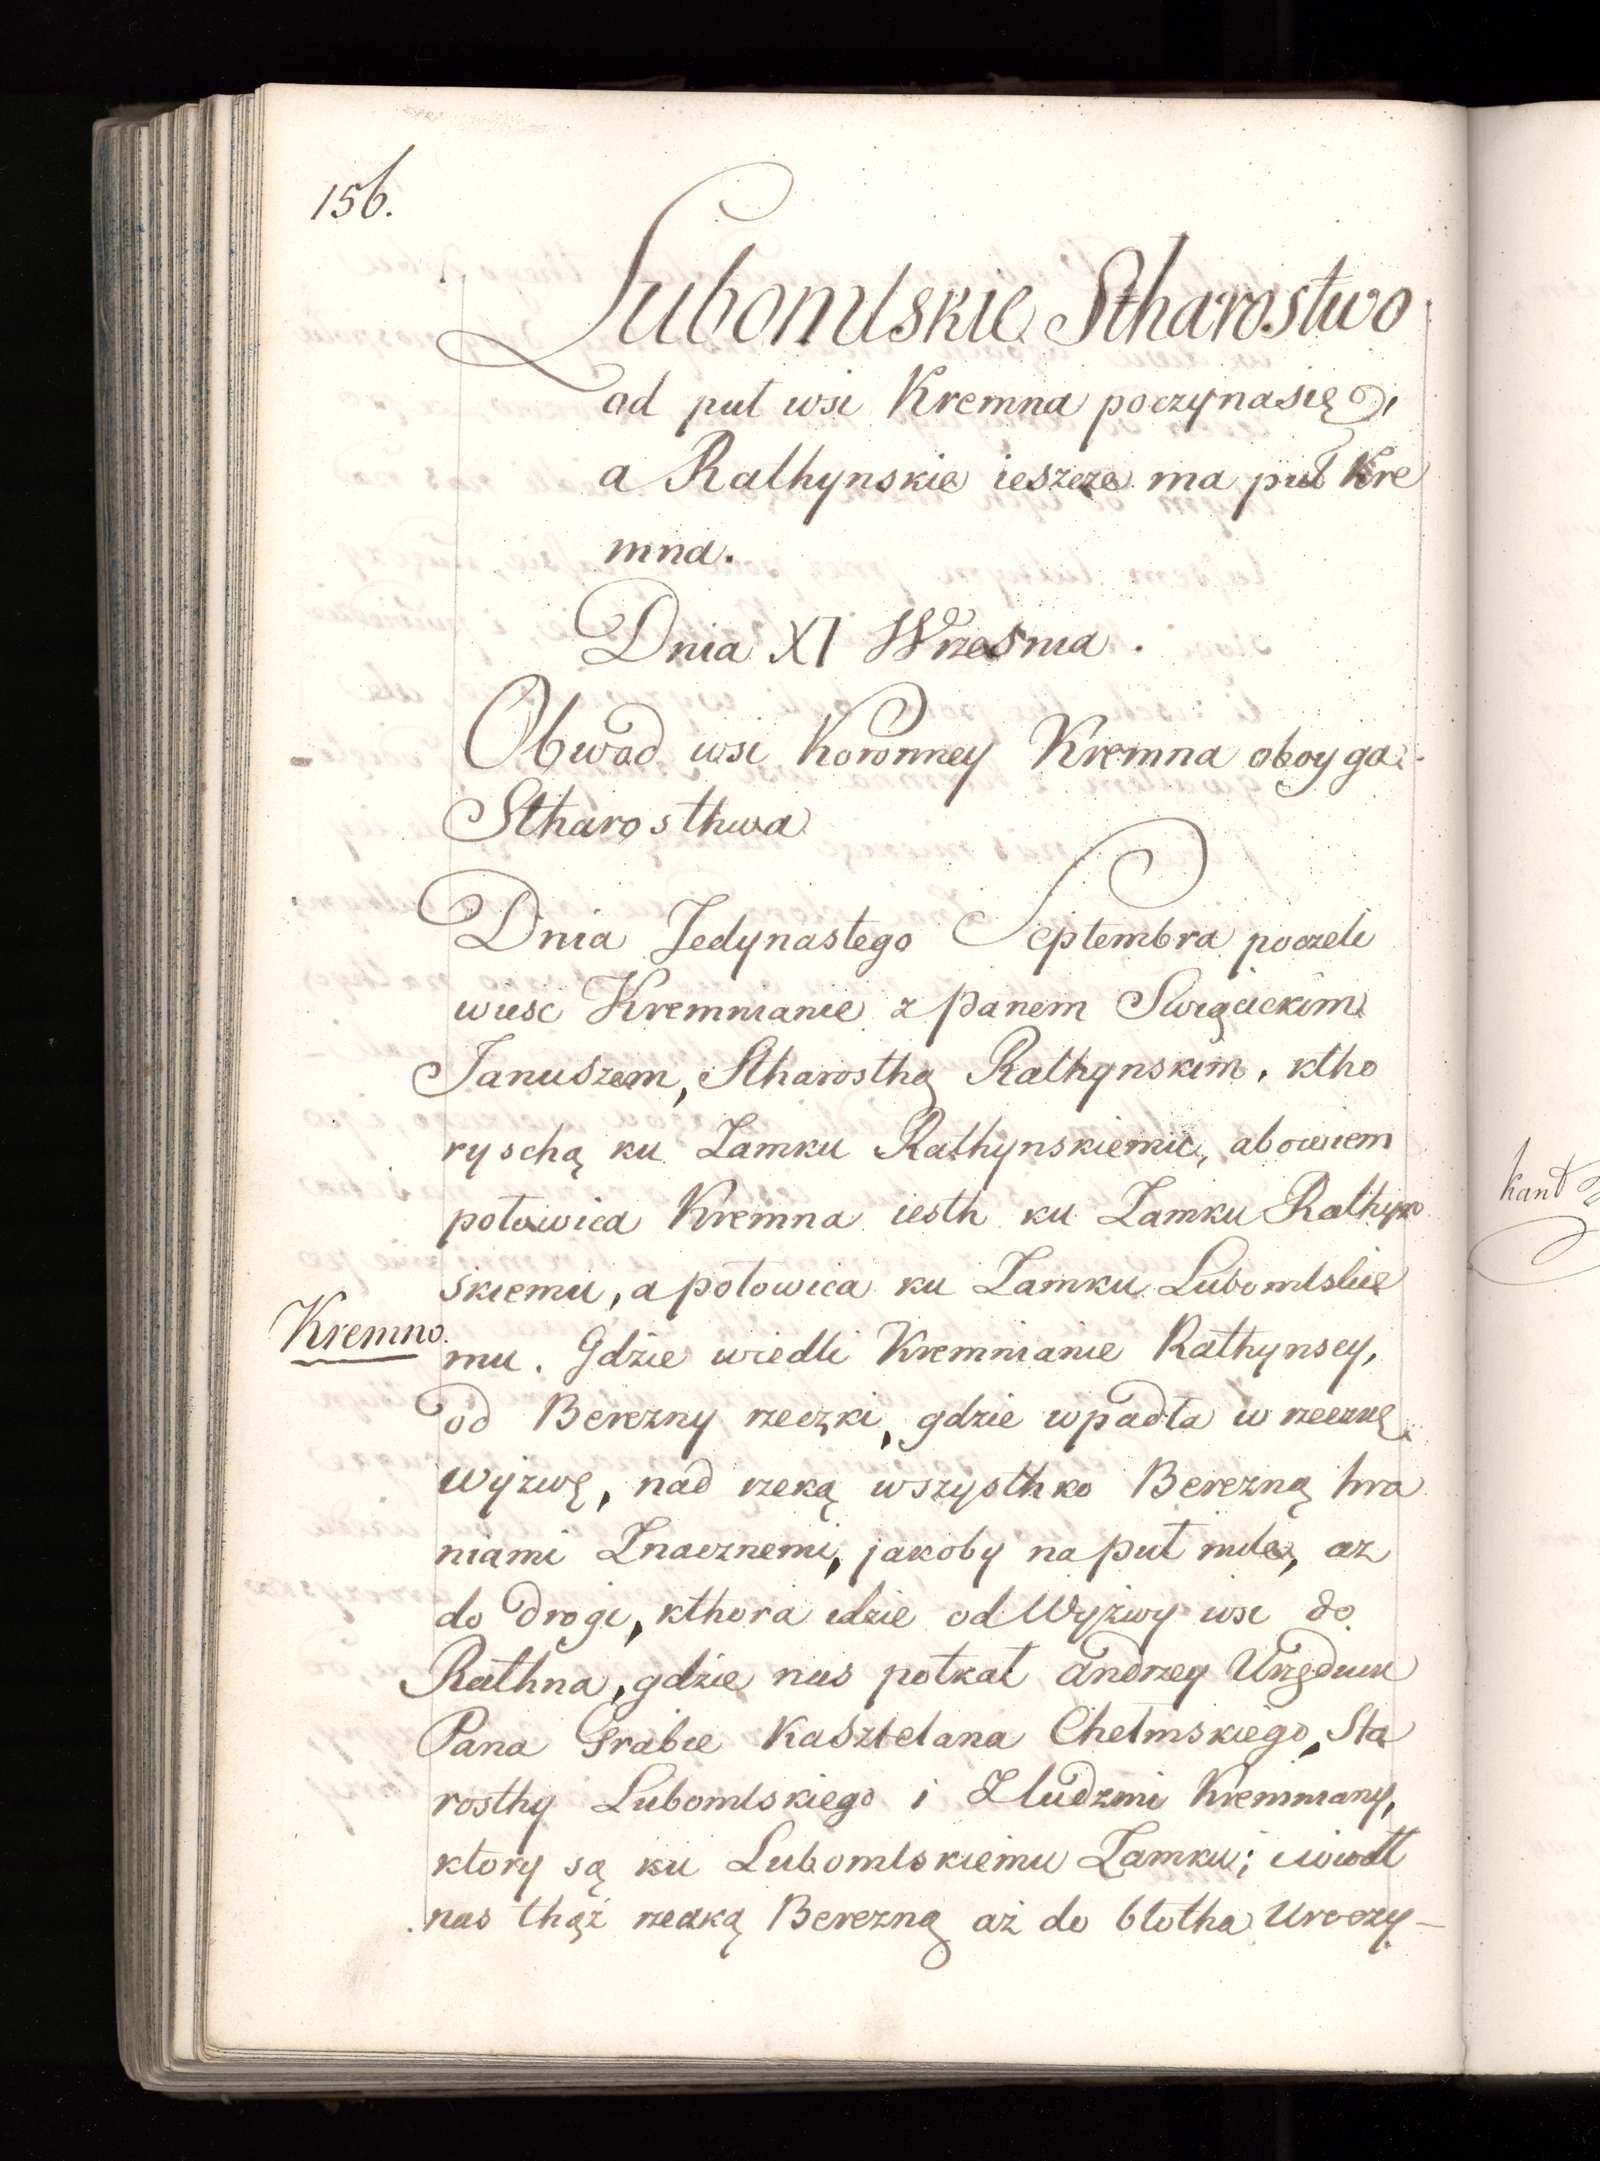 156.
Lubomlskie Stharostwo
od puł wsi Kremna poczynasię,
a Rathynskie ieszcze ma puł Kre
mna.
Dnia XI Wrzesnia.
Obwod wsi Koronney Kremna oboyga
Stharosthwa
Dnia Jedynastego Septembra poczeli
wiesc Kremnianie z panem Swięcickim
Januszem, Stharosthą Rathynskim, ktho
ryschą ku Zamku Rathynskiemu, abowiem
połowica Kremna iesth ku Zamku Rathyn
skiemu, a połowica ku Zamku Lubomlskie
Kremno.
mu. Gdzie wiedli Kremnianie Rathynscy,
od Berezny rzeczki, gdzie wpadła w rzeczkę
Wyżwę, nad rzeką wszysthko Berezną hra
niami Znacznemi, jakoby na puł mile, az
do drogi, kthora idzie od Wyżwy wsi do
Rathna, gdzie nas potkał Andrzey Urzędnik
Pana Grabie Kasztelana Chełmskiego, Sta
rosthy Lubomlskiego i Zludzmi Kremniany,
ktory są ku Lubomlskiemu Zamku; i wiodł
nas thąż rzeczką Berezną aż do błotha Uroczy-
kant